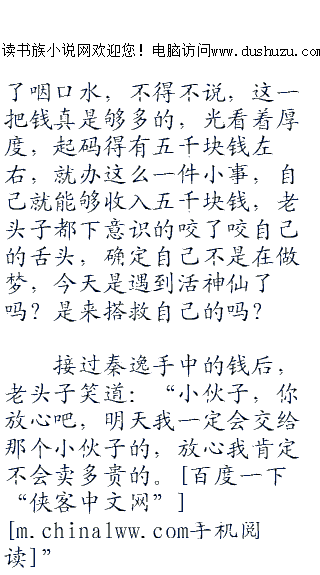 读书族小说网欢迎您！电脑访问www.dushuzu.com
了咽口水，不得不说，这一
把钱真是够多的，光看着厚
度，起码得有五千块钱左
右，就办这么一件小事，自
己就能够收入五千块钱，老
头子都下意识的咬了咬自己
的舌头，确定自己不是在做
梦，今天是遇到活神仙了
吗？是来搭救自己的吗？
接过秦逸手中的钱后，
老头子笑道：“小伙子，你
放心吧，明天我一定会交给
那个小伙子的，放心我肯定
不会卖多贵的。[百度一下
“侠客中文网”]
[m.chinalww.com手机阅
读]”